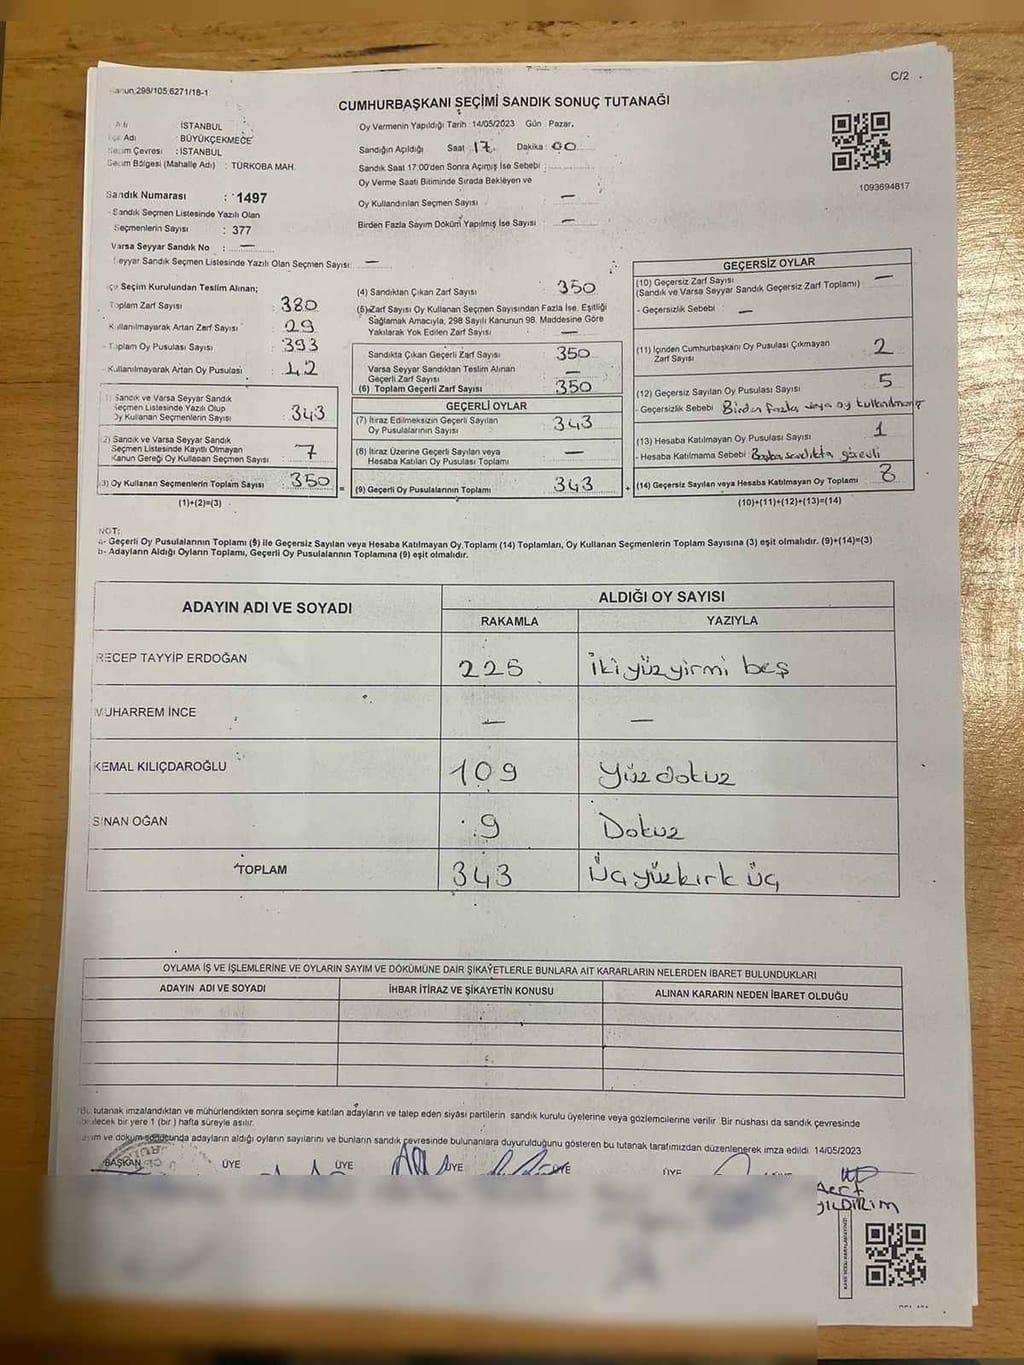 C/2
Kanun:298/105,6271/18-1
CUMHURBAŞKANI SEÇİMİ SANDIK SONUÇ TUTANAĞI
1093694817
: İSTANBUL
Adı : BÜYÜKÇEKMECE
Seçim Çevresi : İSTANBUL
Seçim Bölgesi (Mahalle Adı) : TÜRKOBA MAH.
Sandık Numarası : 1497
- Sandık Seçmen Listesinde Yazılı Olan
Seçmenlerin Sayısı : 377
Varsa Seyyar Sandık No : —
Seyyar Sandık Seçmen Listesinde Yazılı Olan Seçmen Sayısı: —
Oy Vermenin Yapıldığı Tarih : 14/05/2023 Gün : Pazar.
Sandığın Açıldığı Saat : 17 Dakika : 00
Sandık Saat 17:00'den Sonra Açımış İse Sebebi :
Oy Verme Saati Bitiminde Sırada Bekleyen ve
Oy Kullandırılan Seçmen Sayısı —
Birden Fazla Sayım Döküm Yapılmış İse Sayısı —
İlçe Seçim Kurulundan Teslim Alınan;
Toplam Zarf Sayısı : 380
Kullanılmayarak Artan Zarf Sayısı : 29
- Toplam Oy Pusulası Sayısı : 393
- Kullanılmayarak Artan Oy Pusulası : 42
1) Sandık ve Varsa Seyyar Sandık
Seçmen Listesinde Yazılı Olup
Oy Kullanan Seçmenlerin Sayısı : 343
2) Sandık ve Varsa Seyyar Sandık
Seçmen Listesinde Kayıtlı Olmayan
Kanun Gereği Oy Kullanan Seçmen Sayısı : 7
(3) Oy Kullanan Seçmenlerin Toplam Sayısı : 350 =
(1)+(2)=(3)
(4) Sandıktan Çıkan Zarf Sayısı : 350
(5) Zarf Sayısı Oy Kullanan Seçmen Sayısından Fazla İse, Eşitliği
Sağlamak Amacıyla, 298 Sayılı Kanunun 98. Maddesine Göre
Yakılarak Yok Edilen Zarf Sayısı : —
Sandıkta Çıkan Geçerli Zarf Sayısı : 350
Varsa Seyyar Sandıktan Teslim Alınan
Geçerli Zarf Sayısı : —
(6) Toplam Geçerli Zarf Sayısı : 350
GEÇERLİ OYLAR
(7) İtiraz Edilmeksizin Geçerli Sayılan
Oy Pusulalarının Sayısı : 343
(8) İtiraz Üzerine Geçerli Sayılan veya
Hesaba Katılan Oy Pusulası Toplamı : —
(9) Geçerli Oy Pusulalarının Toplamı : 343 +
GEÇERSİZ OYLAR
(10) Geçersiz Zarf Sayısı
(Sandık ve Varsa Seyyar Sandık Geçersiz Zarf Toplamı) —
- Geçersizlik Sebebi —
(11) İçinden Cumhurbaşkanı Oy Pusulası Çıkmayan
Zarf Sayısı 2
(12) Geçersiz Sayılan Oy Pusulası Sayısı 5
- Geçersizlik Sebebi Birden fazla veya oy kullanılmamış
(13) Hesaba Katılmayan Oy Pusulası Sayısı 1
- Hesaba Katılmama Sebebi Başka sandıkta görevli
(14) Geçersiz Sayılan veya Hesaba Katılmayan Oy Toplamı 8
(10)+(11)+(12)+(13)=(14)
NOT:
a- Geçerli Oy Pusulalarının Toplamı (9) ile Geçersiz Sayılan veya Hesaba Katılmayan Oy Toplamı (14) Toplamları, Oy Kullanan Seçmenlerin Toplam Sayısına (3) eşit olmalıdır. (9)+(14)=(3)
b- Adayların Aldığı Oyların Toplamı, Geçerli Oy Pusulalarının Toplamına (9) eşit olmalıdır.
ADAYIN ADI VE SOYADI ALDIĞI OY SAYISI
RAKAMLA YAZIYLA
RECEP TAYYİP ERDOĞAN 225 İkiyüzyirmi beş
MUHARREM İNCE — —
KEMAL KILIÇDAROĞLU 109 Yüzdokuz
SİNAN OĞAN 9 Dokuz
TOPLAM 343 Üçyüzkırk üç
OYLAMA İŞ VE İŞLEMLERİNE VE OYLARIN SAYIM VE DÖKÜMÜNE DAİR ŞİKAYETLERLE BUNLARA AİT KARARLARIN NELERDEN İBARET BULUNDUKLARI
ADAYIN ADI VE SOYADI İHBAR İTİRAZ VE ŞİKAYETİN KONUSU ALINAN KARARIN NEDEN İBARET OLDUĞU
Bu tutanak imzalandıktan ve mühürlendikten sonra seçime katılan adayların ve talep eden siyasi partilerin sandık kurulu üyelerine veya gözlemcilerine verilir. Bir nüshası da sandık çevresinde
bir yere 1 (bir ) hafta süreyle asılır.
Sayım ve döküm sonucunda adayların aldığı oyların sayılarını ve bunların sandık çevresinde bulunanlara duyurulduğunu gösteren bu tutanak tarafımızdan düzenlenerek imza edildi. 14/05/2023
BAŞKAN ÜYE ÜYE ÜYE ÜYE ÜYE
YILDIRIM